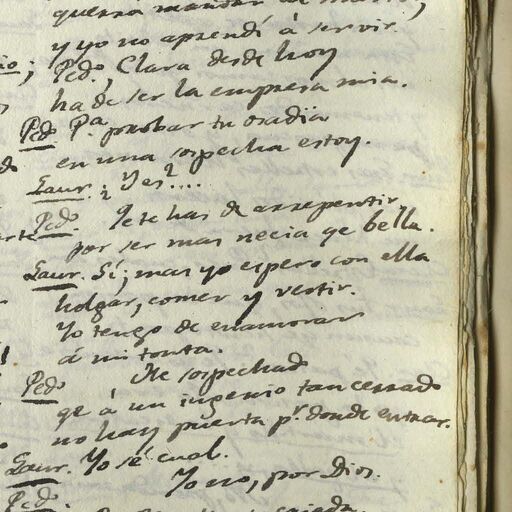 querrá mandar
y yo no aprendí á servir.
Pedo, Clara desde hoy
ha de ser la empresa mia.
Pedo Pa. probar tu osadia
en una sospecha estoy.
Laur. ¿Y es?....
Pedo. Te has de arrepentir,
por ser mas necia qe bella.
Laur. Sí; mas yo espero con ella
holgar, comer y vestir.
Yo tengo de enamorar
á mi tonta.
Pedo He sospechado
qe á un ingenio tan cerrado
no hay puerta pr. donde entrar.
Laur. Yo sé cual.
Yo no, por Dios.
Pedo.